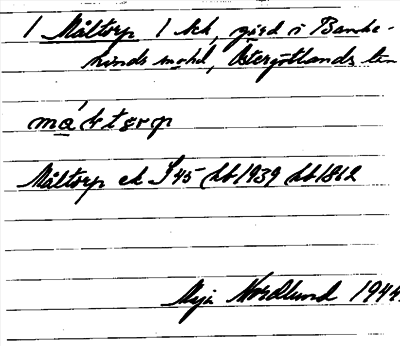 1 Måltorp 1 sk, gård i Banke-
kinds sn o hd, Östergötlands län
må`ltorp
Måltorp ek S 45 hb 1939 hb 1862
Maja Nordlund 1944